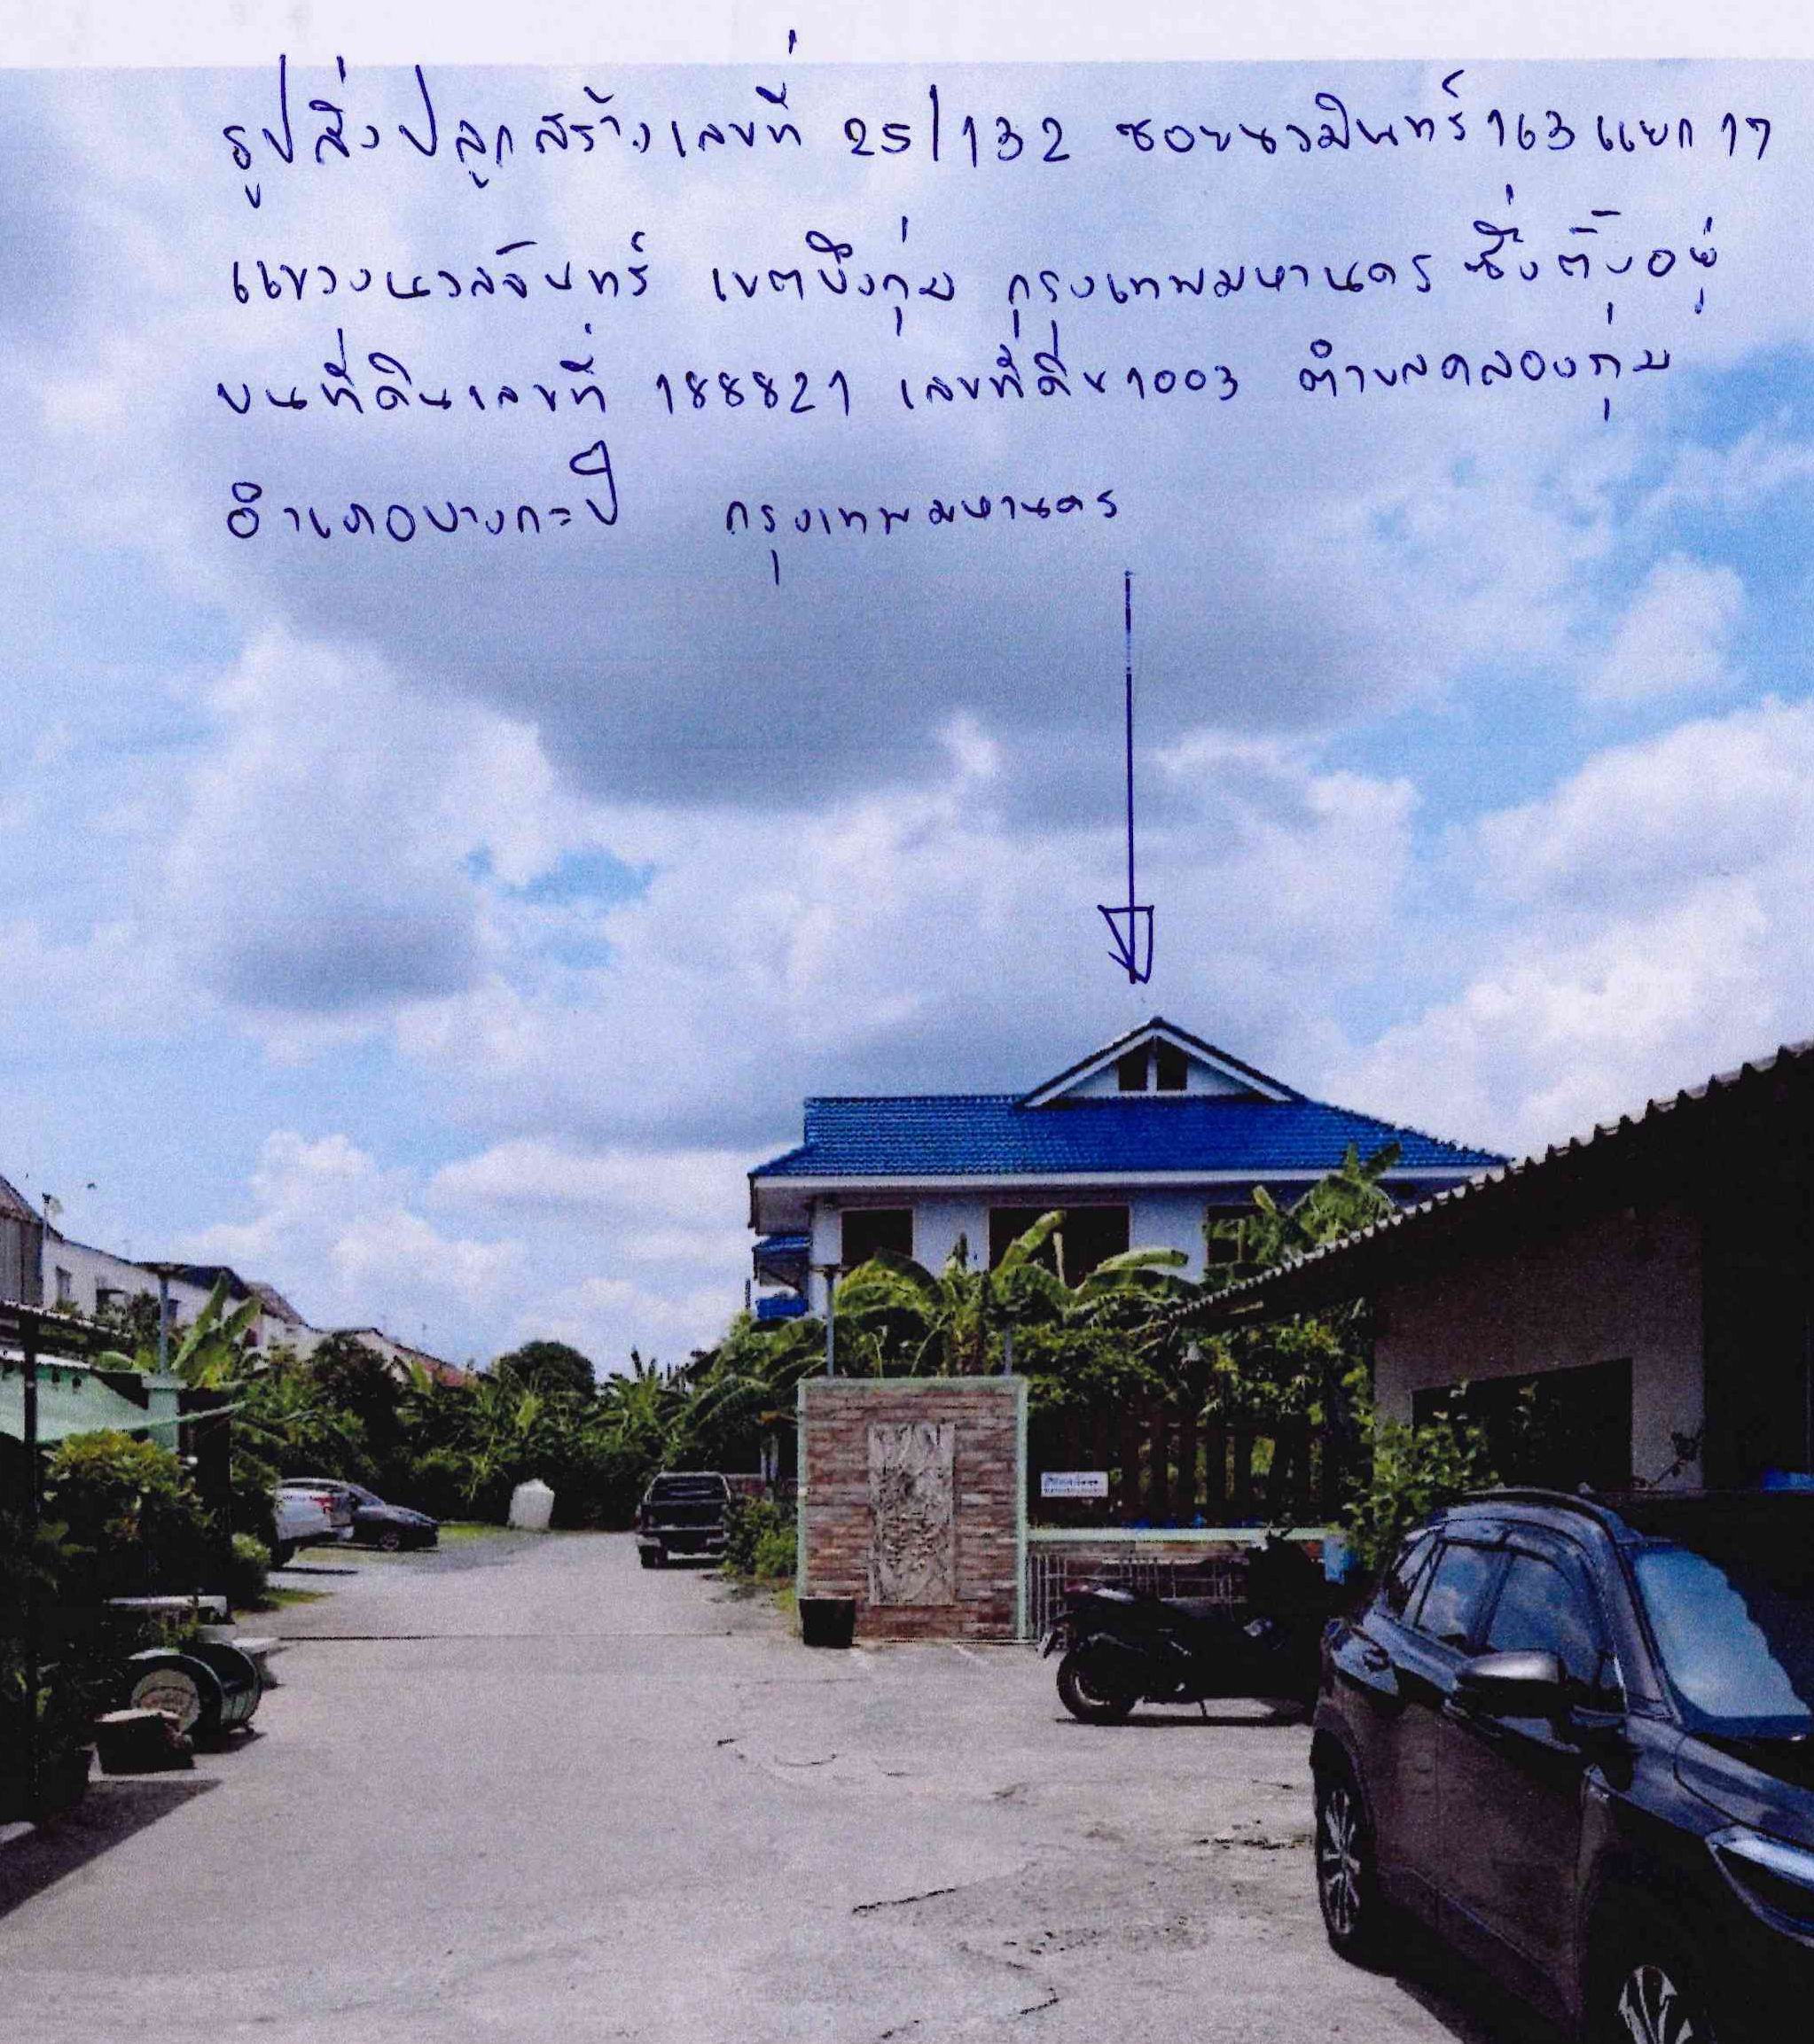 รูปสิ่งปลูกสร้างเลขที่ 25/132 ซอยนวมินทร์ 163 แยก 17
แขวงนวลจันทร์ เขตบึงกุ่ม กรุงเทพมหานคร ซึ่งตั้งอยู่
บนที่ดินเลขที่ 188821 เลขที่ดิน 1003 ตำบลคลองกุ่ม
อำเภอบางกะปิ กรุงเทพมหานคร